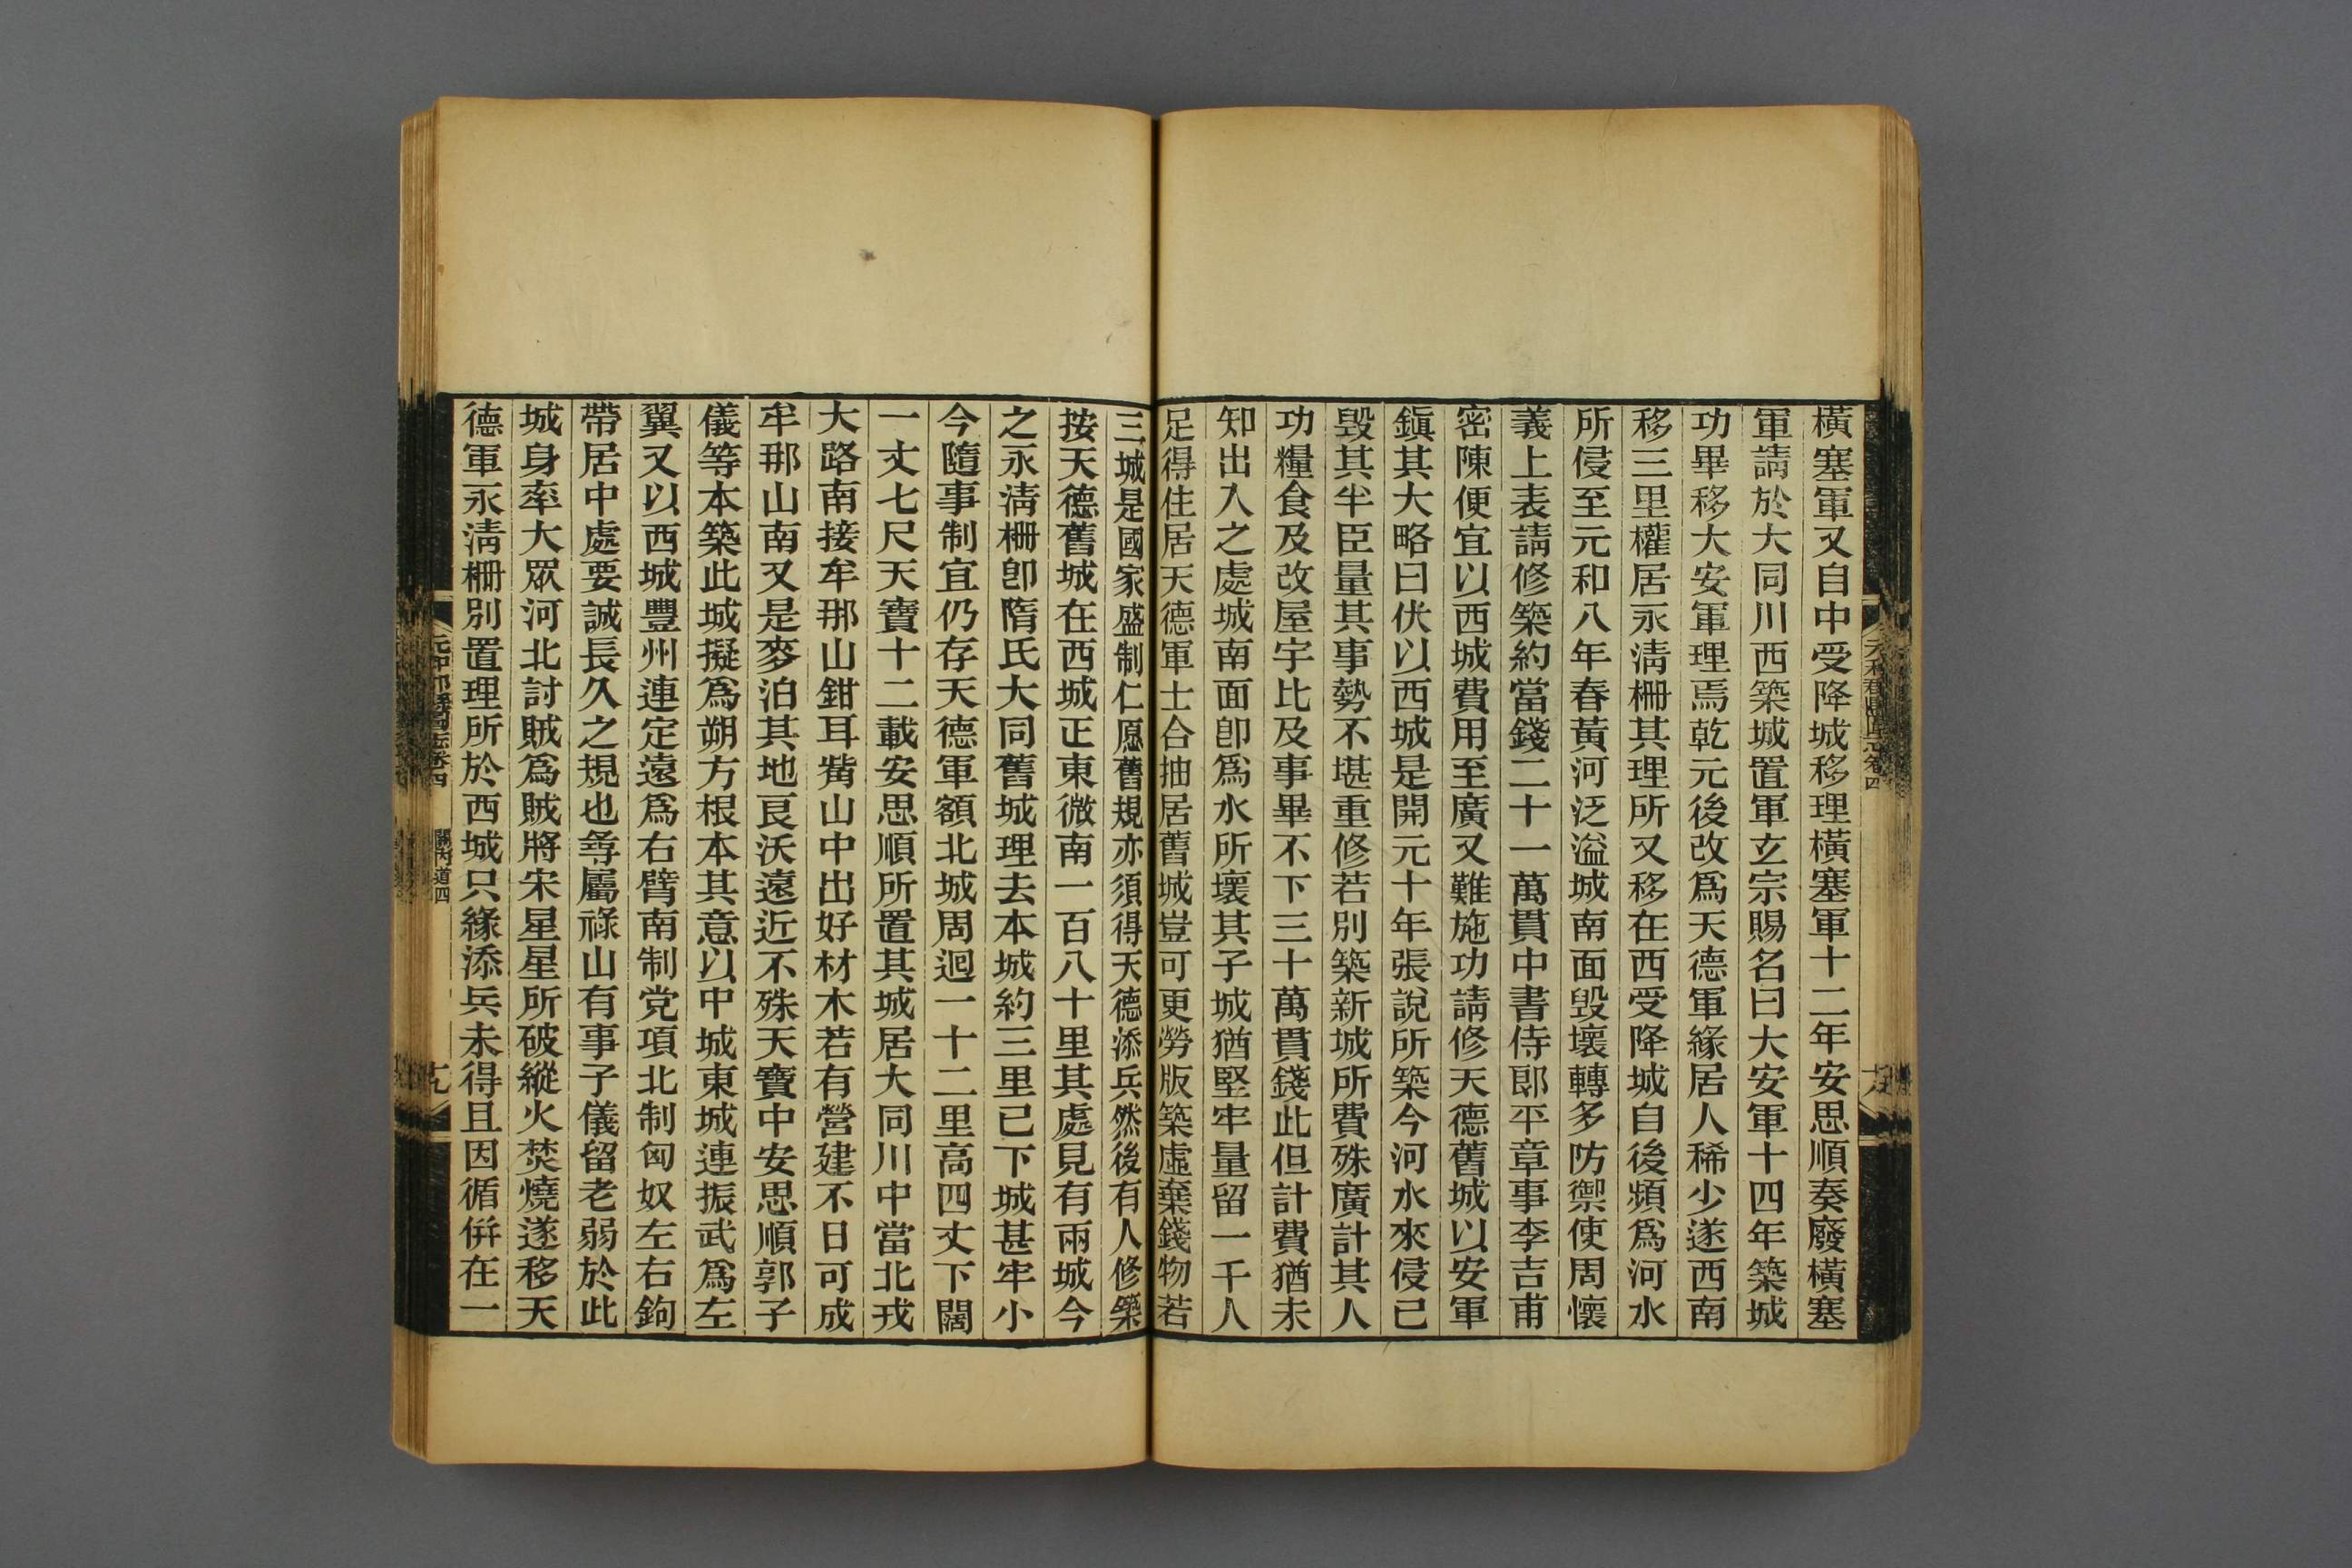 橫塞軍又自中受降城移理橫塞軍十二年安思順奏廢橫塞
軍請於大同川西築城置軍玄宗賜名曰大安軍十四年築城
功畢移大安軍理焉乾元後改爲天德軍緣居人稀少遂西南
移三里權居永淸柵其理所又移在西受降城自後頻爲河水
所侵至元和八年春黃河泛溢城南面毀壞轉多防禦使周懷
義上表請修築約當錢二十一萬貫中書侍郞平章事李吉甫
密陳便宜以西城費用至廣又難施功請修天德舊城以安軍
鎭其大略曰伏以西城是開元十年張說所築今河水來侵已
毀其半臣量其事勢不堪重修若別築新城所費殊廣計其人
功糧食及改屋宇比及事畢不下三十萬貫錢此但計費猶未
知出入之處城南面卽爲水所壞其子城猶堅牢量留一千人
足得住居天德軍士合抽居舊城豈可更勞版築虛棄錢物若
三城是國家盛制仁愿舊規亦須得天德添兵然後有人修築
按天德舊城在西城正東微南一百八十里其處見有兩城今
之永淸柵卽隋氏大同舊城理去本城約三里已下城甚牢小
今隨事制宜仍存天德軍額北城周迴一十二里高四丈下闊
一丈七尺天寶十二載安思順所置其城居大同川中當北戎
大路南接牟那山鉗耳觜山中出好材木若有營建不日可成
牟那山南又是麥泊其地良沃遠近不殊天寶中安思順郭子
儀等本築此城擬爲朔方根本其意以中城東城連振武爲左
翼又以西城豐州連定遠爲右臂南制党項北制匈奴左右鉤
帶居中處要誠長久之規也尋屬祿山有事子儀留老弱於此
城身率大眾河北討賊爲賊將宋星星所破縱火焚燒遂移天
德軍永淸柵別置理所於西城只緣添兵未得且因循倂在一